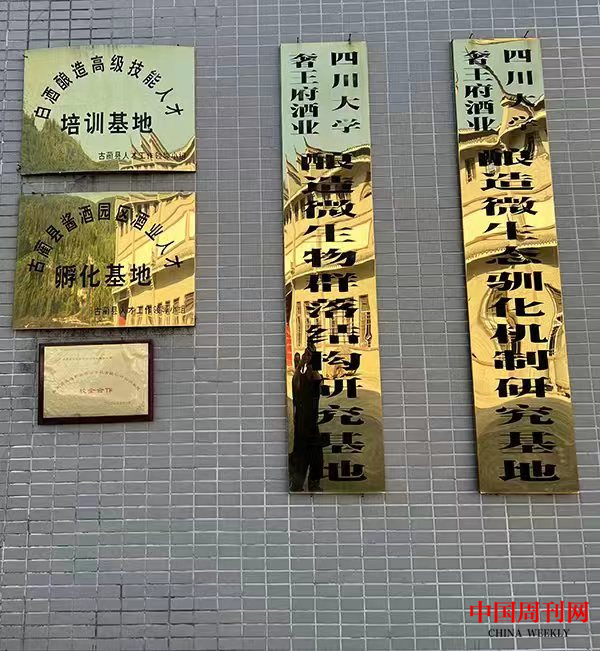 白酒酿造高级技能人才
培训基地
古蔺县人才工作领导小组
古蔺县酱酒园区酒业人才
孵化基地
古蔺县人才工作领导小组
校企合作
四川大学
奢王府酒业
酿造微生物群落结构研究基地
四川大学
奢王府酒业
酿造微生态驯化机制研究基地
中国周刊网
CHINA WEEKLY